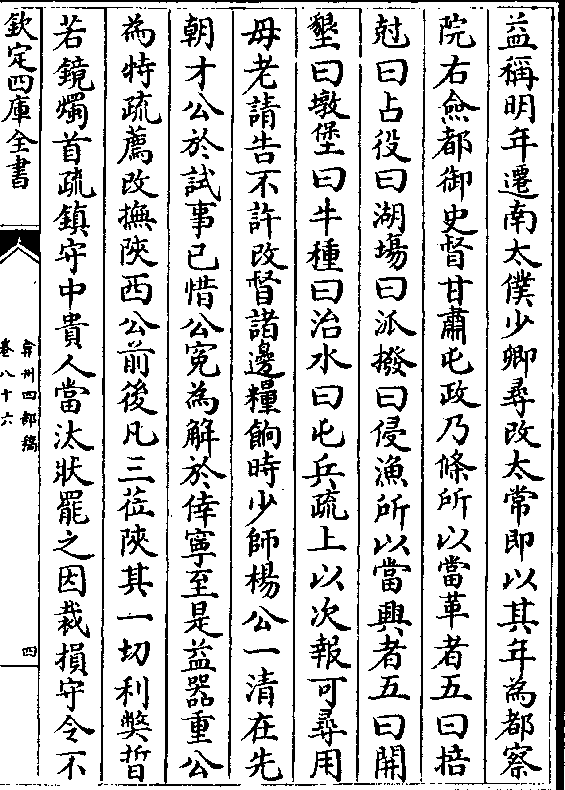 益稱明年遷南太僕少卿尋改太常即以其年為都察
院右僉都御史督甘肅屯政乃條所以當革者五曰掊
尅曰占役曰湖塲曰派撥曰侵漁所以當興者五曰開
墾曰墩堡曰牛種曰治水曰屯兵疏上以次報可尋用
母老請告不許改督諸邊糧餉時少師楊公一清在先
朝才公於試事已惜公寃為解於倖寧至是益器重公
為特疏薦改撫陜西公前後凡三莅陜其一切利獘晢
若鏡燭首疏鎮守中貴人當汰狀罷之因裁損守令不
欽定四庫全書
弇州四部稿
卷八十六
四